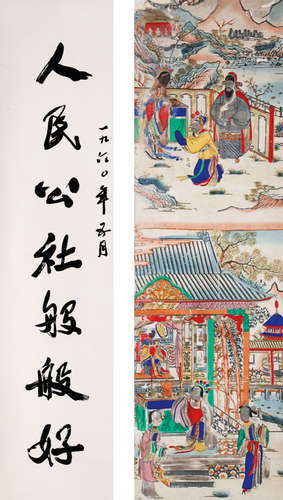 人民公社般般好
一九六〇年五月